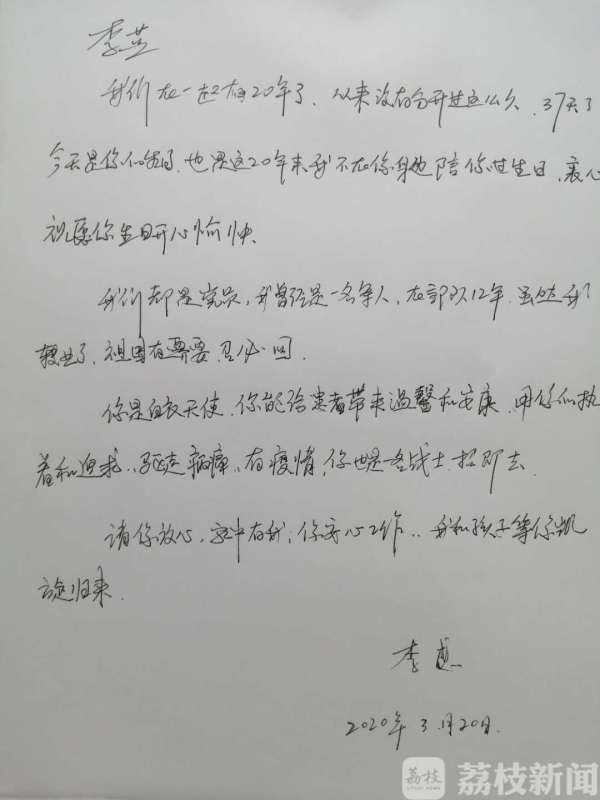 李燕
我们在一起有20年了、从来没有分开过这么久，37天了
今天是你的生日，也是这20年来我不在你身边陪你过生日，衷心
祝愿你生日开心愉快。
我们都是党员，我曾经是一名军人，在部队12年，虽然我
转业了、祖国有需要、召必回。
你是白衣天使、你能给患者带来温馨和安康、用你们执
着和追求、驱走病痛、有疫情，你也是名战士、招即去、
请你放心，家中有我，你安心工作、我和孩子等你凯
旋归来.
李
2020年3月20日.
荔枝
LITCHI NEWS
荔枝新闻